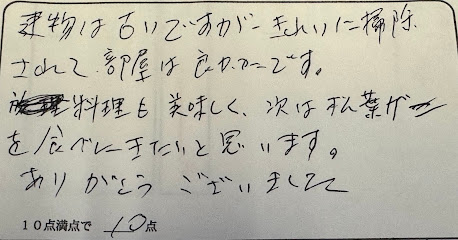 建物は古いですがきれいに掃除
されて部屋は良かったです。
料理も美味しく、次は松葉ガニ
を食べにきたいと思います。
ありがとうございました
10点満点で 10点